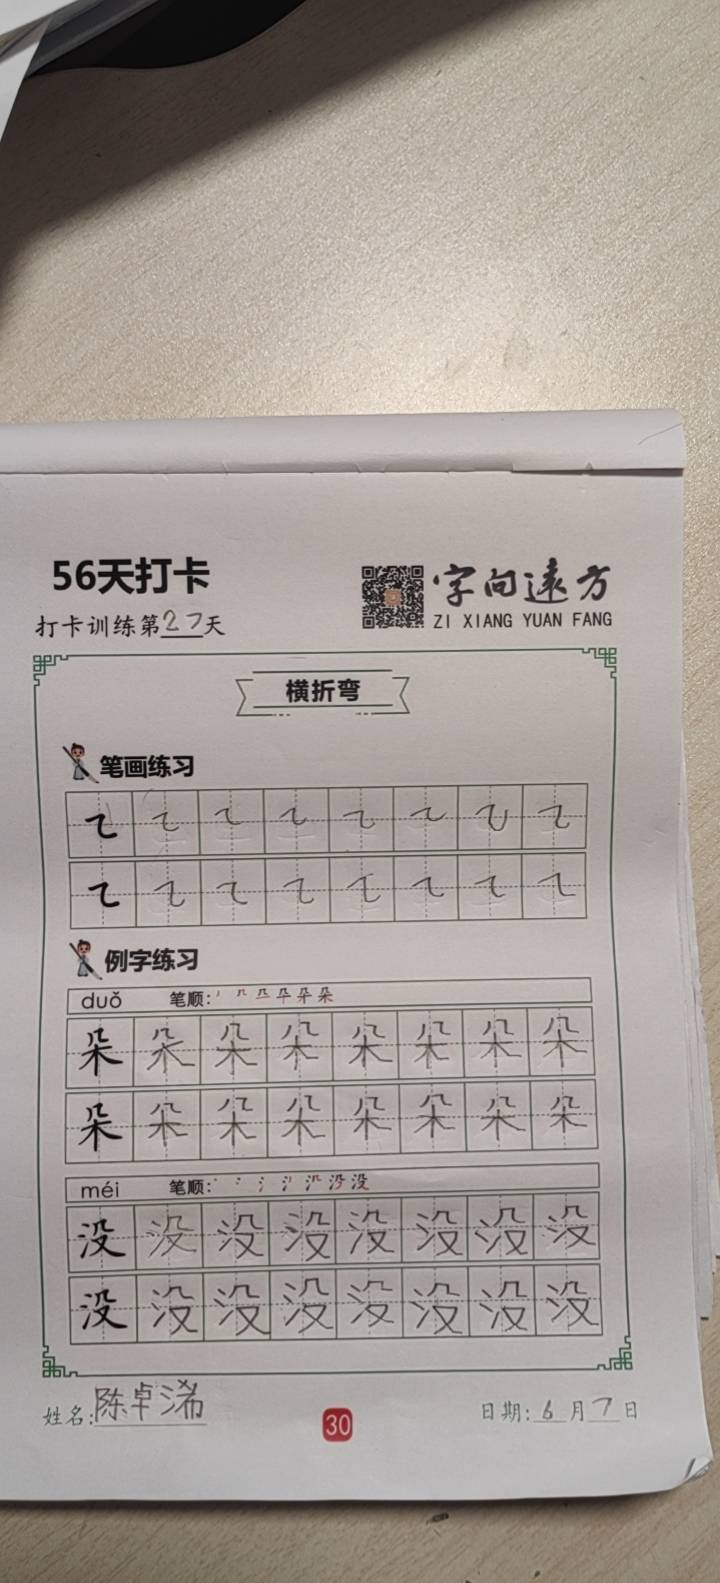 56天打卡
字向远方
打卡训练第27天
ZI XIANG YUAN FANG
横折弯
笔画练习
例字练习
duǒ 笔顺:
朵 朵 朵 朵 朵 朵 朵 朵
朵 朵 朵 朵 朵 朵 朵 朵
méi 笔顺: 没
没 没 没 没 没 没 没 没
没 没 没 没 没 没 没 没
姓名:陈卓浠
30
日期:6月7日